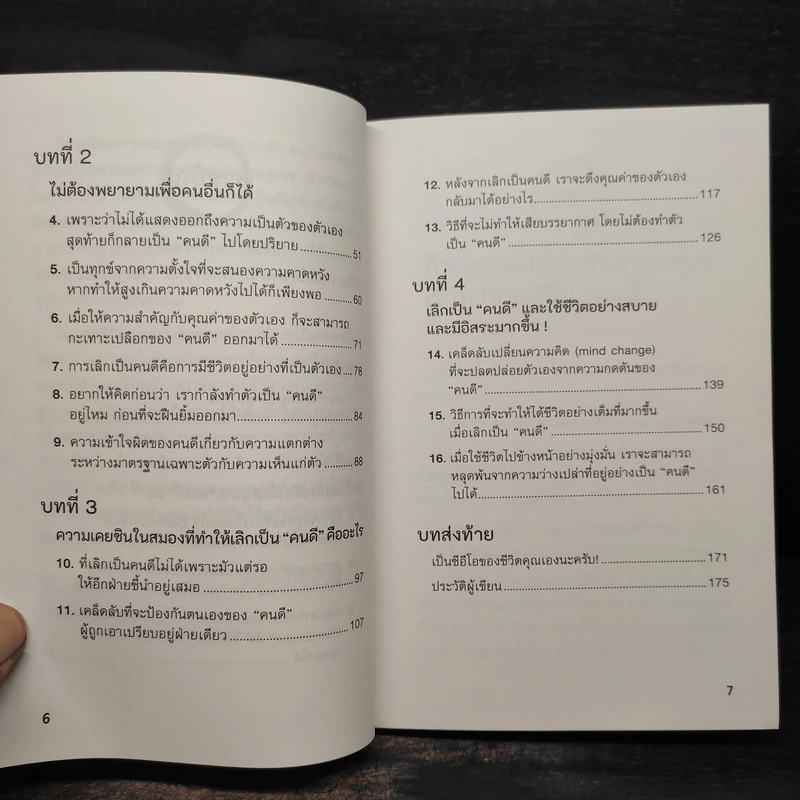 บทที่ 2
ไม่ต้องพยายามเพื่อคนอื่นก็ได้
4. เพราะว่าไม่ได้แสดงออกถึงความเป็นตัวของตัวเอง
สุดท้ายก็กลายเป็น “คนดี” ไปโดยปริยาย...............51
5. เป็นทุกข์จากความตั้งใจที่จะสนองความคาดหวัง
หากทำให้สูงเกินความคาดหวังไปได้ก็เพียงพอ.........60
6. เมื่อให้ความสำคัญกับคุณค่าของตัวเอง ก็จะสามารถ
กะเทาะเปลือกของ “คนดี” ออกมาได้...................71
7. การเลิกเป็นคนดีคือการมีชีวิตอยู่อย่างที่เป็นตัวเอง....78
8. อยากให้คิดก่อนว่า เรากำลังทำตัวเป็น “คนดี”
อยู่ไหม ก่อนที่จะฝืนยิ้มออกมา.............................84
9. ความเข้าใจผิดของคนดีเกี่ยวกับความแตกต่าง
ระหว่างมาตรฐานเฉพาะตัวกับความเห็นแก่ตัว.........88
บทที่ 3
ความเคยชินในสมองที่ทำให้เลิกเป็น “คนดี” คืออะไร
10. ที่เลิกเป็นคนดีไม่ได้เพราะมัวแต่รอ
ให้อีกฝ่ายชี้นำอยู่เสมอ.......................................97
11. เคล็ดลับที่จะป้องกันตนเองของ “คนดี”
ผู้ถูกเอาเปรียบอยู่ฝ่ายเดียว...............................107
6
12. หลังจากเลิกเป็นคนดี เราจะดึงคุณค่าของตัวเอง
กลับมาได้อย่างไร.............................................117
13. วิธีที่จะไม่ทำให้เสียบรรยากาศ โดยไม่ต้องทำตัว
เป็น “คนดี”.....................................................126
บทที่ 4
เลิกเป็น “คนดี” และใช้ชีวิตอย่างสบาย
และมีอิสระมากขึ้น !
14. เคล็ดลับเปลี่ยนความคิด (mind change)
ที่จะปลดปล่อยตัวเองจากความกดดันของ
“คนดี”............................................................139
15. วิธีการที่จะทำให้ได้ชีวิตอย่างเต็มที่มากขึ้น
เมื่อเลิกเป็น “คนดี”..........................................150
16. เมื่อใช้ชีวิตไปข้างหน้าอย่างมุ่งมั่น เราจะสามารถ
หลุดพ้นจากความว่างเปล่าที่อยู่อย่างเป็น “คนดี”
ไปได้...............................................................161
บทส่งท้าย
เป็นซีอีโอของชีวิตคุณเองนะครับ!..............................171
ประวัติผู้เขียน..........................................................175
7